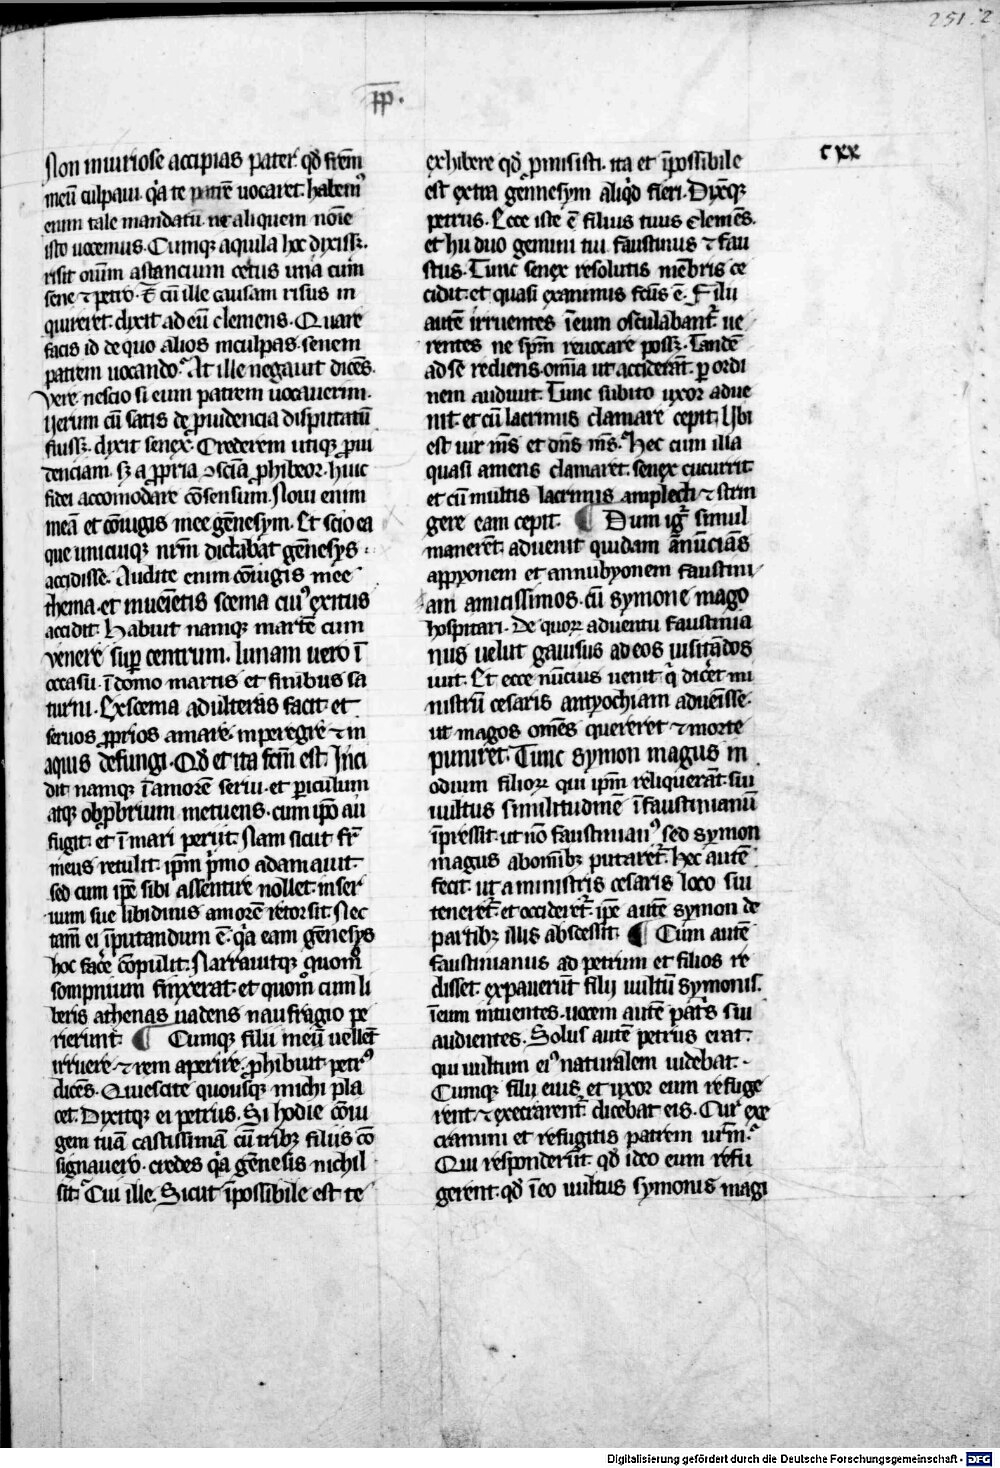 251.2
pp.
cxx
Non iniuriose accipias pater. qd frēm
meū culpaui. qa te patrē uocaret. habem9
enim tale mandatū. ne aliquem noīe
isto uocemus. Cumqz aquila hec dixissz.
risit omīm astancium cetus una cum
sene ⁊ petro. Et cū ille causam risus in
quireret. dixit ad eū clemens. Quare
facis id de quo alios inculpas. senem
patrem uocando. At ille negauit dicēs.
Vere nescio si eum patrem uocauerim.
Verum cū satis de prouidencia disputatū
fuissz. dixit senex. Crederem utiqz proui
denciam. sz a propria ↄsciā prohibeor. huic
fidei accomodare cōsensum. Noui enim
meā et cōiugis mee gēnesym. Et scio ea
que unicuiqz nrm dictabat gēnesys
accidisse. Audite enim cōiugis mee
thema. et inueīetis scema cui9 exitus
accidit. Habuit namqz martē cum
venere sup centrum. lunam uero ī
occasu. ī domo martis et finibus sa
turni. Ex scema adulteras facit. et
seruos proprios amare. in peregre ⁊ in
aquis defungi. Qd et ita fcm est. Inci
dit namqz ī amorē serui. et periculum
atqz obprobrium metuens. cum ipo au
fugit. et ī mari periit. Nam sicut fr
meus retulit. ipm primo adamauit.
sed cum ipe sibi assentire nollet. in ser
uum sue libidinis amorē retorsit. Nec
tam ei īputandum ē. qa eam gēnesys
hoc facere cōpulit. Narrauitqz quom
sompnium finxerat. et quom cum li
beris athenas uadens naufragio pe
rierint. ¶ Cumqz filii meū uellet
irruere. ⁊ rem aperire. prohibuit petr9
dicēs. Quiescite quousqz michi pla
cet. Dixitqz ei petrus. Si hodie cōiu
gem tuā castissimā cū tribz filiis cō
signauero. credes qa gēnesis nichil
sit. Cui ille. Sicut īpossibile est te
exhibere qd promisisti. ita et īpossibile
est extra gēnnesym aliqd fieri. Dixitqz
petrus. Ecce iste ē filius tuus clemēs.
et hii duo gemini tui faustinus ⁊ fau
stus. Tunc senex resolutis mēbris ce
cidit. et quasi exanimis fcūs ē. Filii
autē irruentes ī eum osculabant. ue
rentes ne spm reuocare possz. Tandē
ad se rediens. omīa ut acciderāt. per ordi
nem audiuit. Tunc subito uxor adue
nit. et cū lacrimis clamare cepit. Ubi
est uir ms et dns ms. Hec cum illa
quasi amens clamaret. senex cucurrit
et cū multis lacrimis amplecti ⁊ strin
gere eam cepit. ¶ Dum igr simul
manerēt. aduenit quidam ānūciās
appyonem et annubyonem faustini
ani amicissimos. cū symone mago
hospitari. De quorz aduentu faustinia
nus uelut gauisus ad eos uisitādos
iuit. Et ecce nūcius uenit q diceret mi
nistrū cesaris antyochiam aduēisse.
ut magos omēs quereret ⁊ morte
puniret. Tunc symon magus in
odium filiorz qui ipm reliquerāt. sui
uultus similitudinē ī faustinianū
īpressit. ut nō faustinian9 sed symon
magus ab omibz putaret. Hec autē
fecit. ut a ministris cesaris loco sui
teneret. et occideret. ipe autē symon de
partibz illis abscessit. ¶ Cum autē
faustinianus ad petrum et filios re
disset. expauerūt filii uultū symonis.
ī eum intuentes. uocem autē patris sui
audientes. Solus autē petrus erat.
qui uultum ei9 naturalem uidebat.
Cumqz filii eius et uxor eum refuge
rent. ⁊ execrarent. dicebat eis. Cur exe
cramini et refugitis patrem urm.
Qui responderūt. qd ideo eum refu
gerent. qd ī eo uultus symonis magi
Digitalisierung gefördert durch die Deutsche Forschungsgemeinschaft - DFG